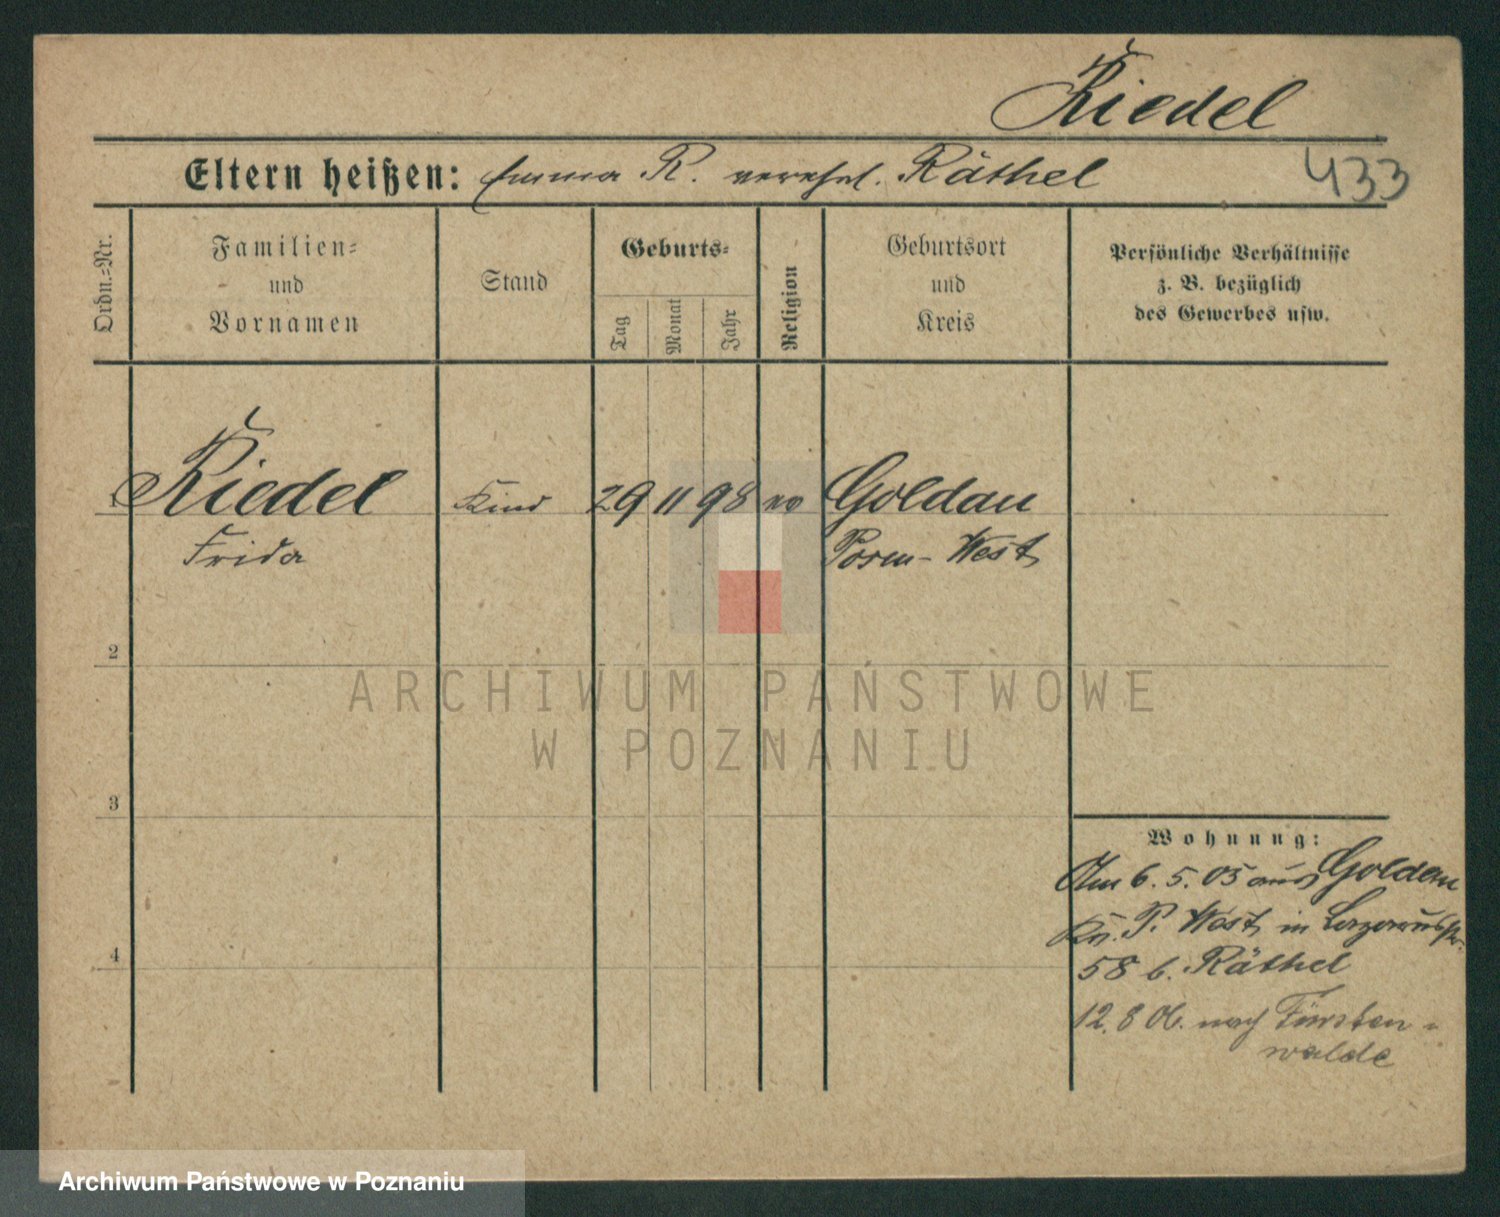 Riedel
Eltern heißen: Emma R. verehel. Räthel
433
Ordn.=Nr.
Familien=
und
Vornamen
Stand
Geburts=
Tag
Monat
Jahr
Religion
Geburtsort
und
Kreis
Persönliche Verhältnisse
z. B. bezüglich
des Gewerbes usw.
1 Riedel Kind 29 11 98 ev Goldau
Frida Posen-West
2
ARCHIWUM PAŃSTWOWE
W POZNANIU
3
Wohnung:
Am 6. 5. 05 aus Goldau
Kr. P. West, in Lazarusstr.
58 b. Räthel
4
12. 8 06. nach Fürsten=
walde
Archiwum Państwowe w Poznaniu